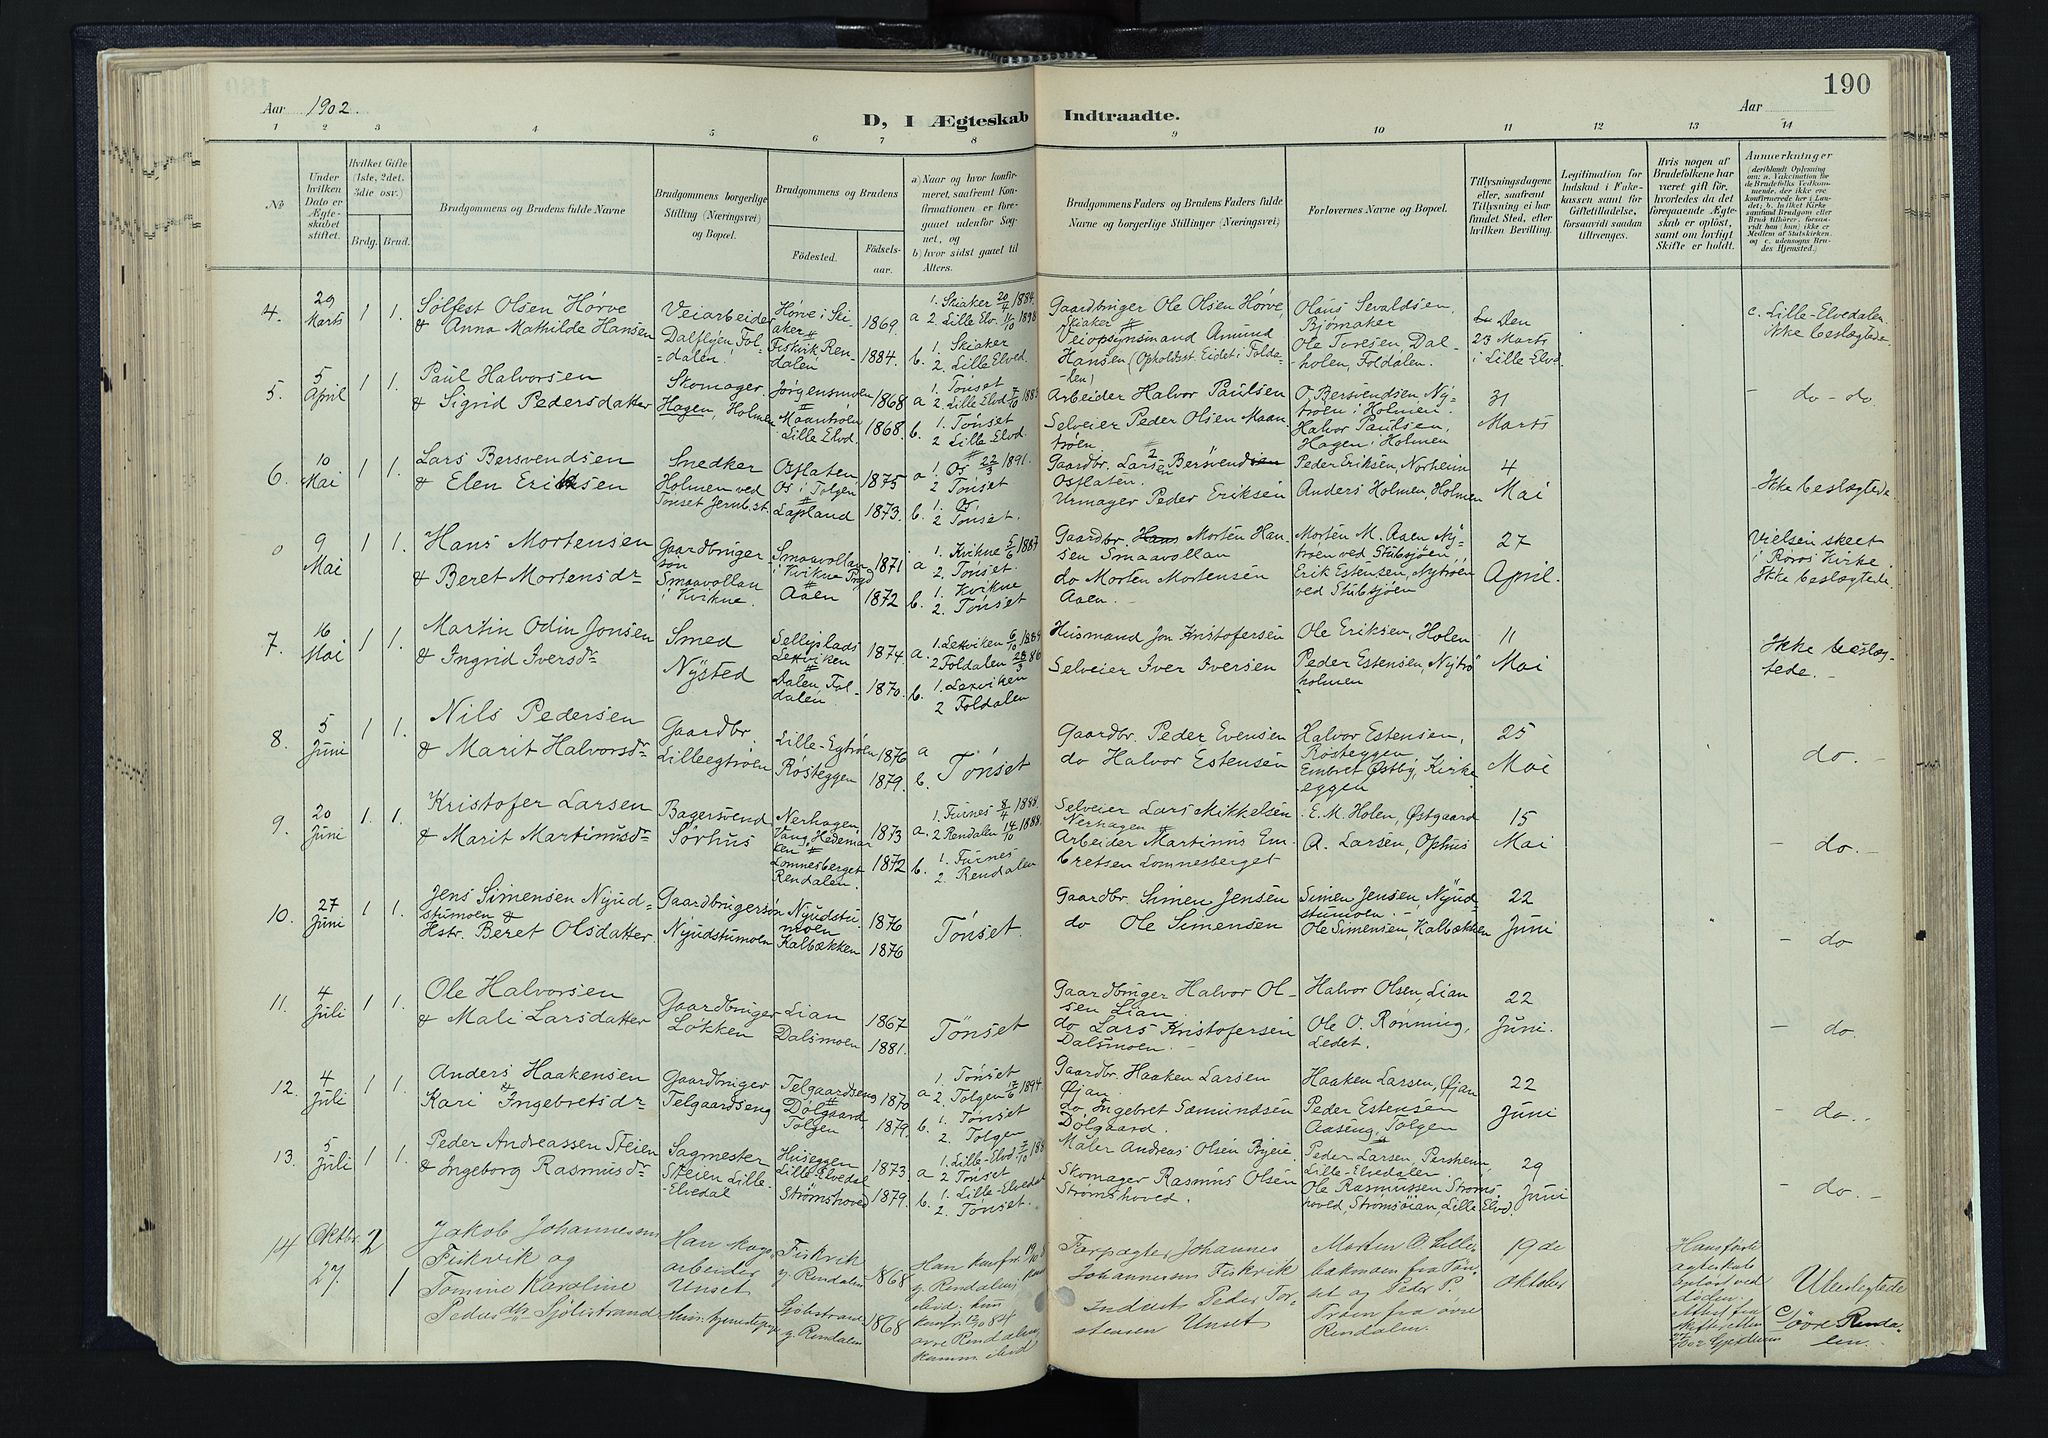 190
Aar 1902.
Aar
D, I Ægteskab Indtraadte.
1 2 3 4 5 6 7 8 9 10 11 12 13 14
No
Under hvilken Dato er Ægteskabet stiftet.
Hvilket Gifte (1ste, 2det, 3die osv.)
Brdg. Brud.
Brudgommens og Brudens fulde Navne
Brudgommens borgerlige Stilling (Næringsvei) og Bopæl.
Brudgommens og Brudens
Fødested. Fødselsaar.
a) Naar og hvor konfirmeret, saafremt Konfirmationen er foregaaet udenfor Sognet, og
b) hvor sidst gaaet til Alters.
Brudgommens Faders og Brudens Faders fulde Navne og borgerlige Stillinger (Næringsvei)
Forlovernes Navne og Bopæl.
Tillysningsdagene eller, saafremt Tillysning ei har fundet Sted, efter hvilken Bevilling.
Legitimation for Indskud i Fakekassen samt for Giftetilladelse, forsaavidt saadan tiltrænges.
Hvis nogen af Brudefolkene har været gift før, hvorledes da det foregaaende Ægteskab er opløst, samt om lovligt Skifte er holdt.
Anmerkninger
4. 29 Marts 1 1.
Sølfest Olsen Hørve
& Anna Mathilde Hansen
Veiarbeider
Dalfløjen Fol-
dalen
Hørve i Ski-
aker
Fiskvik Ren-
dalen
1869.
1884.
a 1. Skiaker 20/4 1884.
2. Lille Elv. 1898
b. 1. Skiaker
2. Lille Elved.
Gaardbruger Ole Olsen Hørve,
Skiaker
Veiopsynsmand Amund
Hansen (Opholdsst. Eidet i Folda-
len)
Olaus Sevaldsen
Bjørnaker
Ole Toresen Dal-
holen, Foldalen.
Den
23 Marts
i Lille-Elvd.
c. Lille-Elvedalen.
Ikke beslægtede
5. 5 April 1 1.
Paul Halvorsen
& Sigrid Pedersdatter
Skomager.
Hagen, Holmen
Jørgensmoen
Maantrøen
Lille Elvd.
1868
1868.
a 1. Tønset
2. Lille Elvd
b. 1. Tønset
2 Lille Elvd.
Arbeider Halvor Paulsen
Selveier Peder Olsen Maan
trøen
O. Bersvendsen Ny-
trøen i Holmen.
Halvor Paulsen,
Hagen i Holmen
31
Marts
- do - do.
6. 10 Mai 1 1.
Lars Bersvendsen
& Elen Eriksen
Snedker
Holmen ved
Tønset Jernb.st.
Osflaten
Os i Tolgen
Lapland
1875
1873.
a 1. Os 22/3 1891.
2 Tønset
b. 1. Os
2 Tønset.
Gaardbr. Larsen Bersvendsen
Osflaten.
Urmager Peder Eriksen
Peder Eriksen, Norheim
Anders Holmen, Holmen
4
Mai
Ikke beslægtede
0 9 Mai 1 1.
Hans Mortensen
& Beret Mortensdr
Gaardbruger
søn
Smaavollan
i Kvikne.
Smaavollan
i Kvikne Prgd
Aaen
1871
1872
a 1. Kvikne 5/6 1887
2. Tønset.
b. 1. Kvikne
2 Tønset
Gaardbr. Hans Morten Han
sen Smaavollan
do Morten Mortensen
Aaen.
Morten M. Aaen Ny-
trøen ved Stubsjøen
Erik Estensen, Nytrøen
ved Stubsjøen
27
April.
Vielsen skeet
i Røros Kirke.
Ikke beslægtede
7. 16 Mai 1 1.
Martin Odin Jonsen
& Ingrid Iversdr
Smed
Nysted
Selliplads
Leksviken
Dalen, Fol-
dalen
1874
1870.
a. 1. Leksviken 6/10 1889
2 Foldalen 28/3 86
b. 1. Leksviken
2 Foldalen
Husmand Jon Kristofersen
Selveier Iver Iversen
Ole Eriksen, Holen
Peder Estensen, Nytrø
holmen
11
Mai
Ikke beslæg-
tede.
8. 5 Juni 1 1.
Nils Pedersen
& Marit Halvorsdr
Gaardbr.
Lilleegtrøen
Lille-Egtrøen
Røsteggen
1876
1879.
a
b. Tønset
Gaardbr. Peder Evensen
do Halvor Estensen
Halvor Estensen,
Røsteggen
Embret Østby, Kirke
eggen
25
Mai
do.
9. 20 Juni 1. 1.
Kristofer Larsen
& Marit Martinusdr
Bagersvend
Sørhus
Nerhagen,
Vang, Hedemar
ken
Lomnesberget
Rendalen.
1873
1872
a. 1. Furnes 8/4 1888.
2 Rendalen 14/10 1888.
b. 1. Furnes
2. Rendalen
Selveier Lars Mikkelsen
Nerhagen
Arbeider Martinus Em-
bretsen Lomnesberget
E. M. Holen, Østgaard
A. Larsen, Ophus
15
Mai
- do. -
10. 27 Juni 1 1.
Jens Simensen Nyud-
stumoen &
Hstr. Beret Olsdatter.
Gaardbrugersøn
Nyudstumoen
Nyudstu-
moen
Kalbækken
1876
1876
Tønset.
Gaardbr. Simen Jensen
do Ole Simensen
Simen Jensen, Nyud-
stumoen.
Ole Simensen, Kalbækken
22
Juni
- do
11. 4 Juli 1 1.
Ole Halvorsen
& Mali Larsdatter
Gaardbruger
Løkken
Lian
Dalsmoen
1867
1881.
Tønset
Gaardbruger Halvor Ol-
sen Lian.
do Lars Kristofersen
Dalsmoen.
Halvor Olsen, Lian
Ole O. Rønning,
Ledet.
22
Juni.
- do.
12. 4 Juli 1 1.
Anders Haakensen
& Kari Ingebretsdr
Gaardbruger
Telgaardseng
Telgaardseng
Dølgaard
Tolgen
1870
1879.
a 1. Tønset
2. Tolgen 17/6 1894.
b. 1. Tønset
2. Tolgen
Gaardbr. Haaken Larsen
Øian.
do. Ingebret Sæmundsen
Dølgaard.
Haaken Larsen, Øjan
Peder Estensen
Aaseng, Tolgen
22
Juni
- do.
13. 5 Juli 1 1.
Peder Andreassen Steien
& Ingeborg Rasmusdr
Sagmester
Steien Lille-
Elvedal
Huseggen
Lille Elvedal
Strømshoved
1873
1879.
a 1. Lille-Elvd 7/10
2 Tønset
b. 1. Lille-Elvedal
2. Tønset.
Maler Andreas Olsen Byeie.
Skomager Rasmus Olsen
Strømshoved.
Peder Larsen, Persheim,
Lille-Elvedalen
Ole Rasmussen Strøms-
hoved, Strømsøian, Lille Elvd.
29
Juni
- do. -
14 Oktbr. 27. 2 1
Jakob Johannessen
Fiskvik og
Tomine Karoline
Pedersdtr Sjölistrand
Han Sags-
arbeider
Unset
Hun: tjenestepige
Fiskvik
y. Rendalen
Sjølistrand
y. Rendalen
1868
1868
Han konfr.
y. Rendalen,
hun
konfr. 84
øvre Rendalen,
Forpagter Johannes
Johannessen Fiskvik
Inderst Peder Tor-
stensen Unset
Morten O. Lille-
bakmoen fra Tøn-
set og Peder P.
Trøen fra øvre
Rendalen.
19de
Oktober
Hans første
ægteskab
opløst ved
døden.
Attest fra
skifteretten
Ubeslegtede
c/ Øvre Renda-
len.